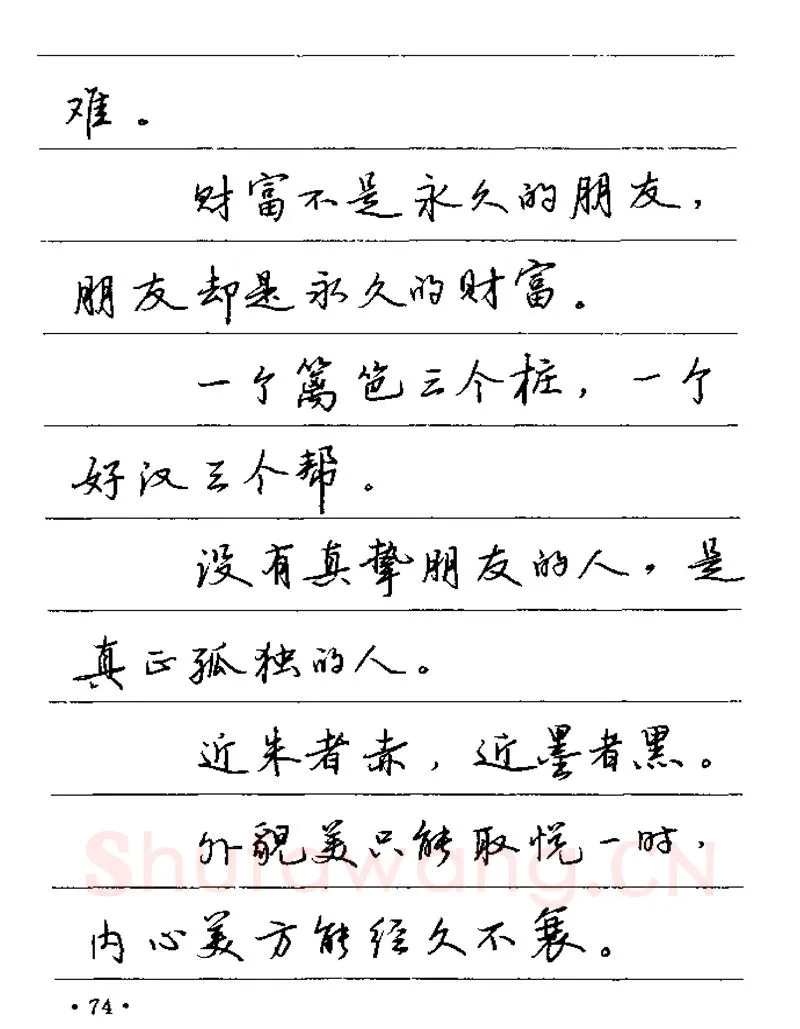 难。
财富不是永久的朋友，
朋友却是永久的财富。
一个篱笆三个桩，一个
好汉三个帮。
没有真挚朋友的人，是
真正孤独的人。
近朱者赤，近墨者黑。
外貌美只能取悦一时，
内心美方能经久不衰。
Shufawang.CN
·74·